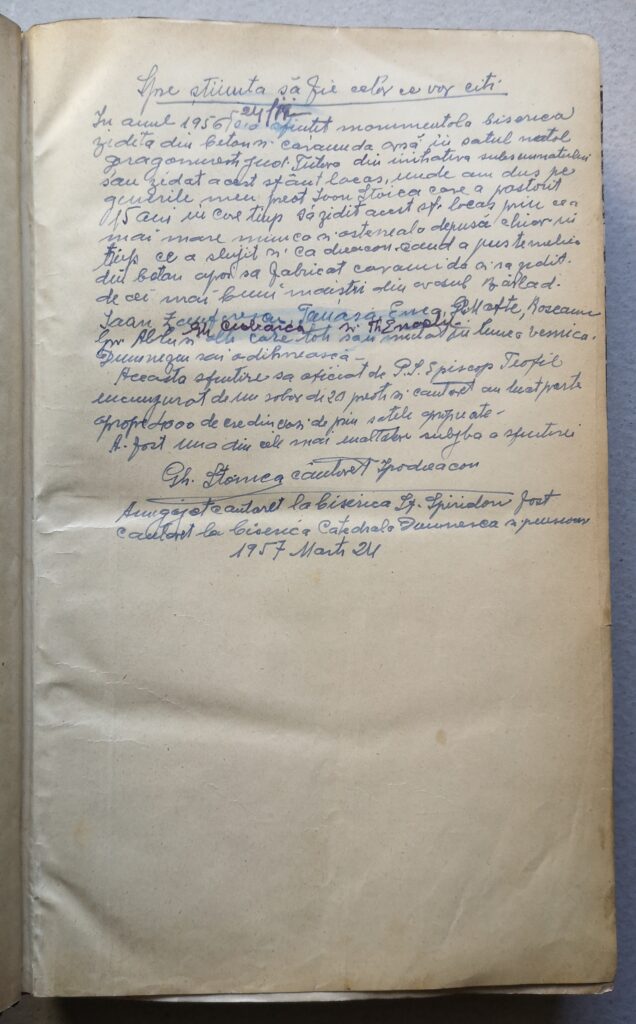 Spre știința să fie celor ce vor citi
24/IX
În anul 1956 s-a sfintit monumentala biserica
zidită din beton si caramida arsă, in satul natal
Dragomirești jud. Tutova din initiativa subsemnatului
sau zidat acest sfânt locas, unde am dus pe
ginerile meu preot Ioan Stoica care a pastorit
15 ani in care timp sa zidit acest sf. locas prin cea
mai mare munca si osteneala depusă chiar in
timp ce a slujit si ca diacon. cand a pus temelia
din beton apoi sa fabricat caramida si sa zidit
de cei mai buni maistri din orasul Bârlad.
Ioan Tanasă, Roseanu
Gh. Ciobărca si Th. Enache
Gr. care toti sau mutat in lumea vesnica.
Dumnezeu sai odihnească –
Aceasta sfintire sa oficiat de P.S. Episcop Teofil
incunjurat de un sobor de 20 preoti si cantaret au luat parte
aprope 4000 de credinciosi de prin satele apropiate –
A fost una din cele mai inaltatoare slujba a sfintirei
Gh. cântaret Ipodiacon
Angajat cantaret la biserica Sf. Spiridon fost
cantaret la biserica Catedrala Domnesca si pensionar
1957 Marti 24